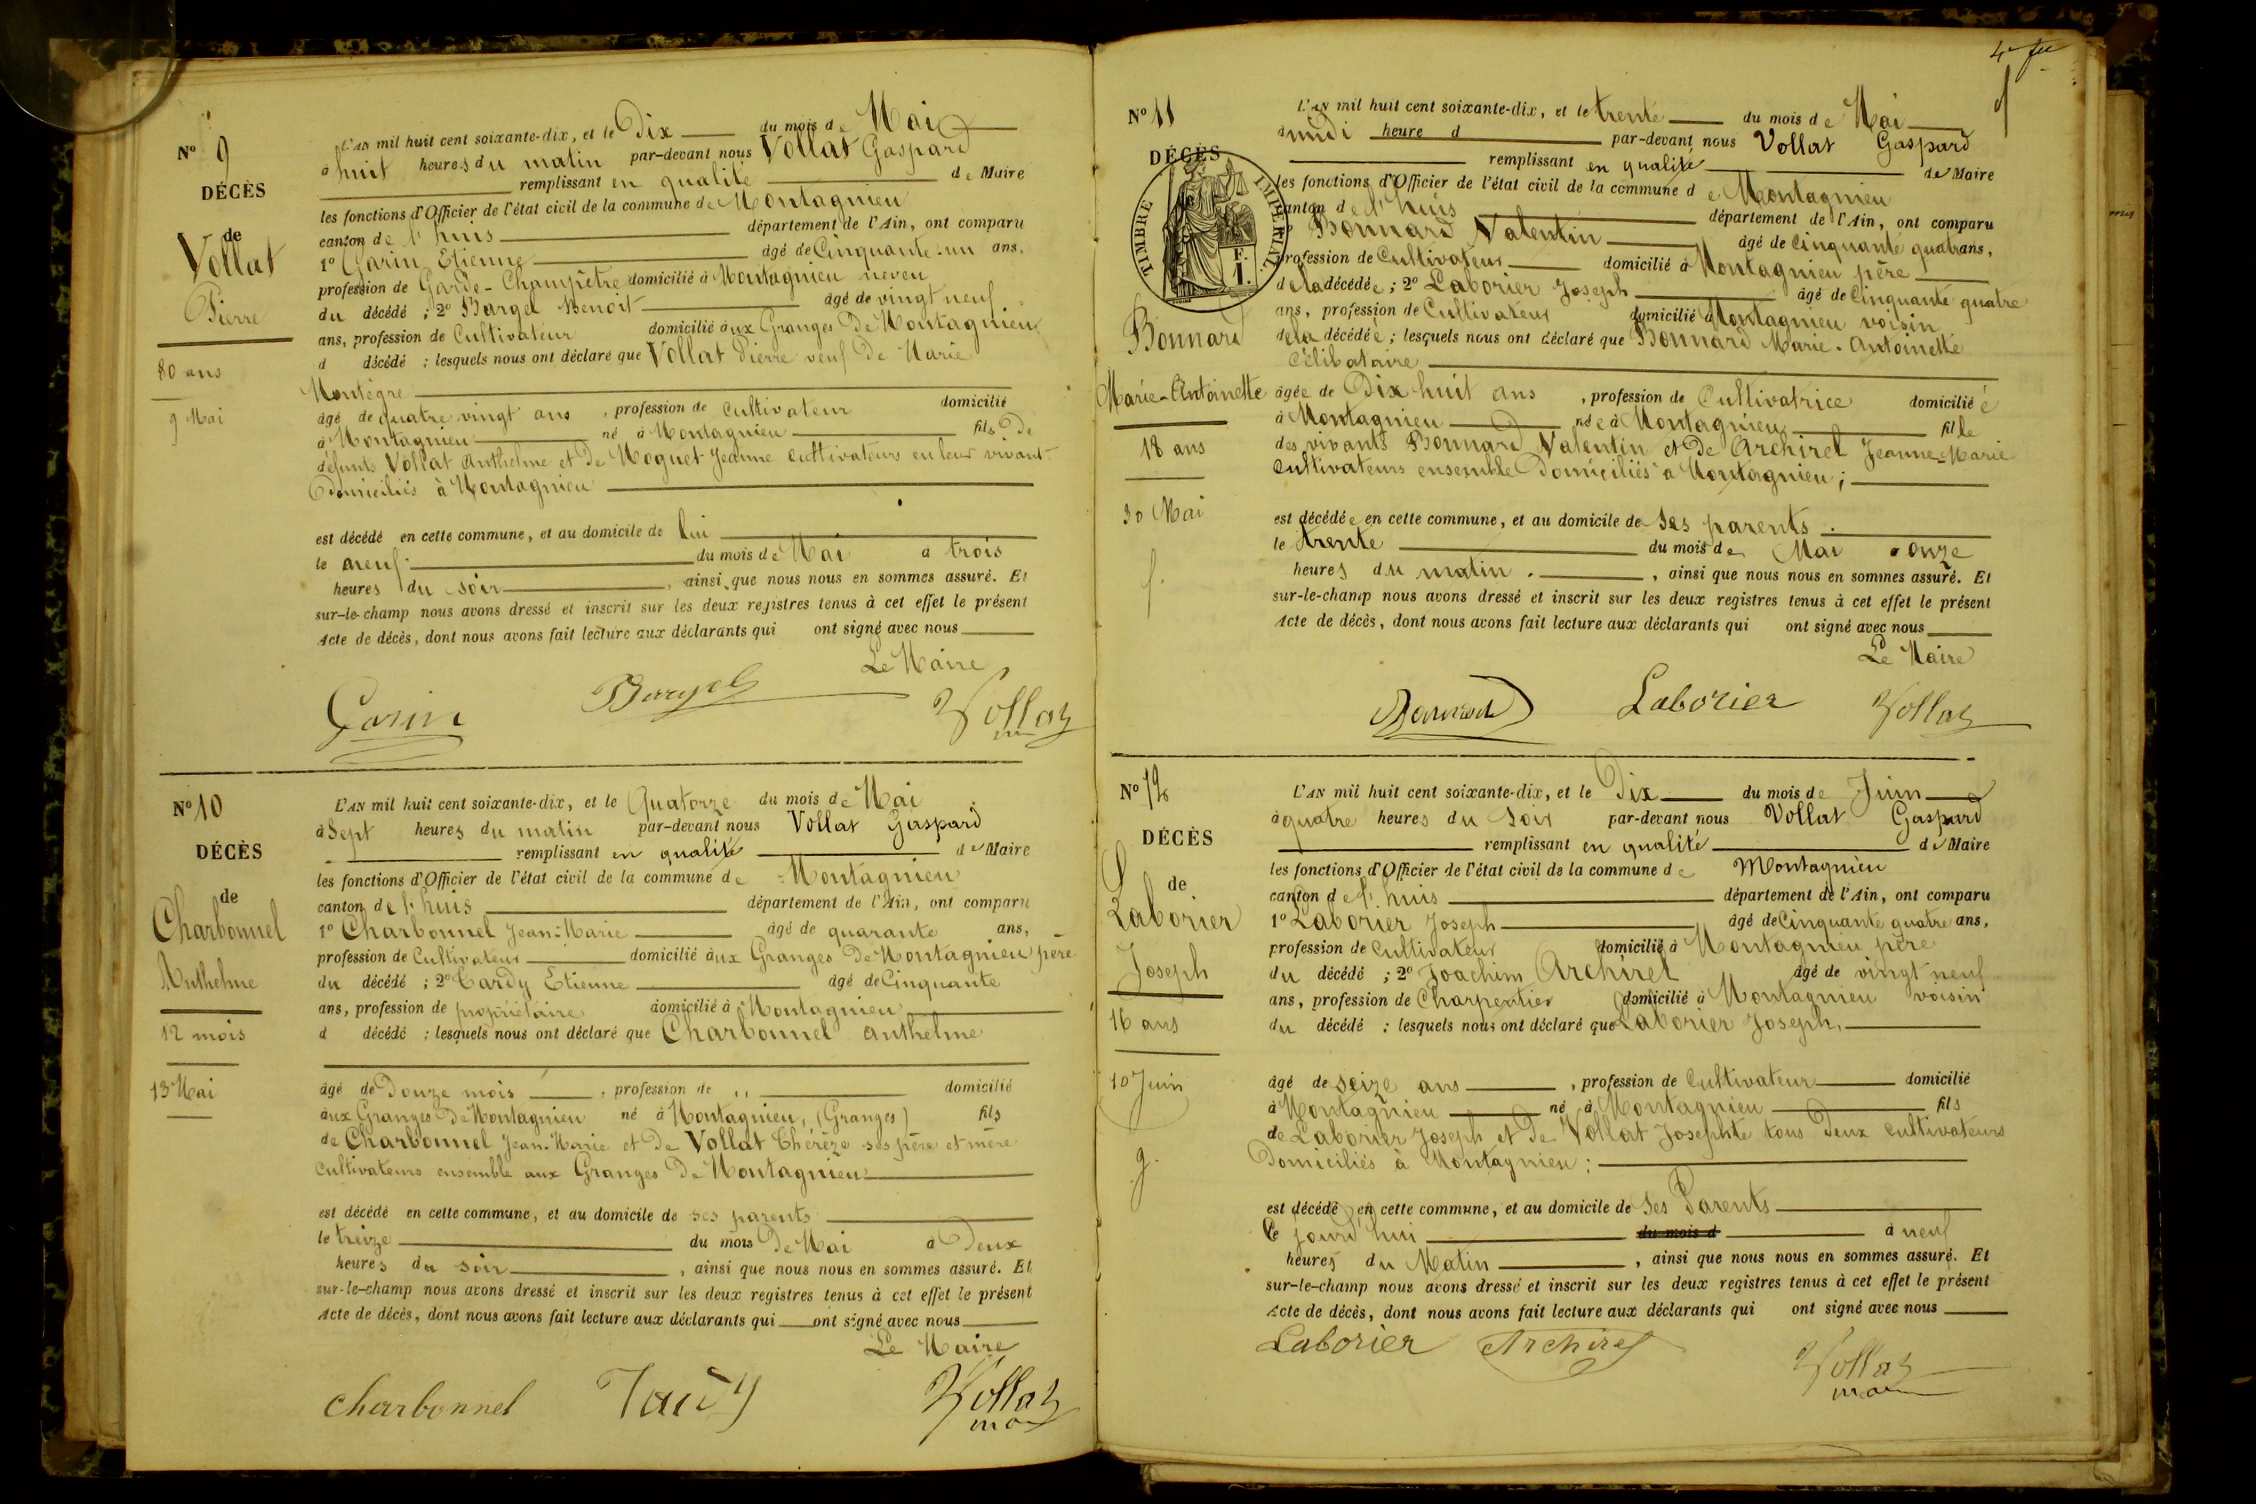 N° 9
DÉCÈS
de
Vollat
Pierre
80 ans
9 Mai
L'AN mil huit cent soixante-dix, et le Dix du mois de Mai
à huit heures du matin par-devant nous Vollat Gaspard
remplissant en qualité de Maire
les fonctions d'Officier de l'état civil de la commune de Montagnieu
canton de l'huis département de l'Ain, ont comparu
1° Garin Etienne âgé de Cinquante-un ans,
profession de Garde-Champêtre domicilié à Montagnieu neveu
du décédé ; 2° Bargel Benoit âgé de vingt neuf
ans, profession de Cultivateur domicilié aux Granges De Montagnieu
d décédé ; lesquels nous ont déclaré que Vollat Pierre veuf De Marie
Montègre
âgé de quatre vingt ans , profession de Cultivateur domicilié
à Montagnieu né à Montagnieu fils De
défunts Vollat Anthelme et De Moguet Jeanne cultivateurs en leur vivant
Domiciliés à Montagnieu
est décédé en cette commune, et au domicile de lui
le neuf du mois de Mai à trois
heures du soir , ainsi que nous nous en sommes assuré. Et
sur-le-champ nous avons dressé et inscrit sur les deux registres tenus à cet effet le présent
Acte de décès, dont nous avons fait lecture aux déclarants qui ont signé avec nous
Le Maire
Garin Bargel Vollat
N° 10
DÉCÈS
de
Charbonnel
Anthelme
12 mois
13 Mai
L'AN mil huit cent soixante-dix, et le Quatorze du mois de Mai
à Sept heures du matin par-devant nous Vollat Gaspard
remplissant en qualité de Maire
les fonctions d'Officier de l'état civil de la commune de Montagnieu
canton de l'huis département de l'Ain, ont comparu
1° Charbonnel Jean-Marie âgé de quarante ans,
profession de Cultivateur domicilié aux Granges De Montagnieu père
du décédé ; 2° Tardy Etienne âgé de Cinquante
ans, profession de propriétaire domicilié à Montagnieu
d décédé ; lesquels nous ont déclaré que Charbonnel Anthelme
âgé de Douze mois , profession de ,, domicilié
aux Granges De Montagnieu né à Montagnieu, (Granges) fils
de Charbonnel Jean-Marie et De Vollat Thérèze ses père et mère
Cultivateurs ensemble aux Granges De Montagnieu
est décédé en cette commune, et au domicile de ses parents
le treize du mois De Mai à Deux
heures du soir , ainsi que nous nous en sommes assuré. Et
sur-le-champ nous avons dressé et inscrit sur les deux registres tenus à cet effet le présent
Acte de décès, dont nous avons fait lecture aux déclarants qui ont signé avec nous
Le Maire
charbonnel Tardy Vollat
4e fu
N° 11
DÉCÈS
TIMBRE IMPÉRIAL
F.
1.
Bonnard
Marie-Antoinette
18 ans
30 Mai
L'AN mil huit cent soixante-dix, et le trente du mois de Mai
à midi heure d par-devant nous Vollat Gaspard
remplissant en qualité de Maire
les fonctions d'Officier de l'état civil de la commune de Montagnieu
canton de l'huis département de l'Ain, ont comparu
Bonnard Valentin âgé de Cinquante quatre ans,
profession de Cultivateur domicilié à Montagnieu père
de la décédée ; 2° Laborier Joseph âgé de Cinquante quatre
ans, profession de Cultivateur domicilié à Montagnieu voisin
de la décédée ; lesquels nous ont déclaré que Bonnard Marie-Antoinette
Célibataire
âgée de Dix huit ans , profession de Cultivatrice domiciliée
à Montagnieu née à Montagnieu fille
des vivants Bonnard Valentin et De Archirel Jeanne-Marie
cultivateurs ensemble Domiciliés à Montagnieu ;
est décédée en cette commune, et au domicile de Ses parents
le trente du mois de Mai à onze
heures du matin , ainsi que nous nous en sommes assuré. Et
sur-le-champ nous avons dressé et inscrit sur les deux registres tenus à cet effet le présent
Acte de décès, dont nous avons fait lecture aux déclarants qui ont signé avec nous
Le Maire
Bonnard Laborier Vollat
N° 12
DÉCÈS
de
Laborier
Joseph
16 ans
10 Juin
L'AN mil huit cent soixante-dix, et le Dix du mois de Juin
à quatre heures du Soir par-devant nous Vollat Gaspard
remplissant en qualité de Maire
les fonctions d'Officier de l'état civil de la commune de Montagnieu
canton de l'huis département de l'Ain, ont comparu
1° Laborier Joseph âgé de Cinquante quatre ans,
profession de Cultivateur domicilié à Montagnieu père
du décédé ; 2° Joachim Archirel âgé de vingt neuf
ans, profession de Charpentier domicilié à Montagnieu voisin
du décédé ; lesquels nous ont déclaré que Laborier Joseph,
âgé de seize ans , profession de Cultivateur domicilié
à Montagnieu né à Montagnieu fils
de Laborier Joseph et De Vollat Josephte tous Deux cultivateurs
Domiciliés à Montagnieu ;
est décédé en cette commune, et au domicile de Ses Parents
Ce jourd'hui du mois d à neuf
heures du Matin , ainsi que nous nous en sommes assuré. Et
sur-le-champ nous avons dressé et inscrit sur les deux registres tenus à cet effet le présent
Acte de décès, dont nous avons fait lecture aux déclarants qui ont signé avec nous
Laborier Archirel Vollat